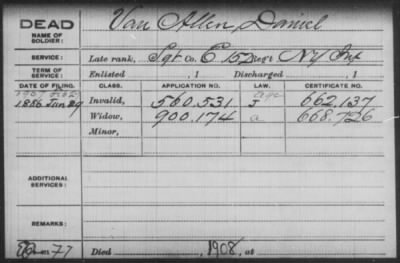 DEAD Van Allen, Daniel
NAME OF SOLDIER:
SERVICE: Late rank, Sgt Co. E 152 Reg't NY Inf
TERM OF SERVICE: Enlisted , 1 Discharged , 1
DATE OF FILING. CLASS. APPLICATION NO. LAW. CERTIFICATE NO.
1907
1886 Jan 29 Invalid, 560.531 J 662.137
Widow, 900.174 a 668.726
Minor,
ADDITIONAL SERVICES:
REMARKS:
77 Died , 1908, at